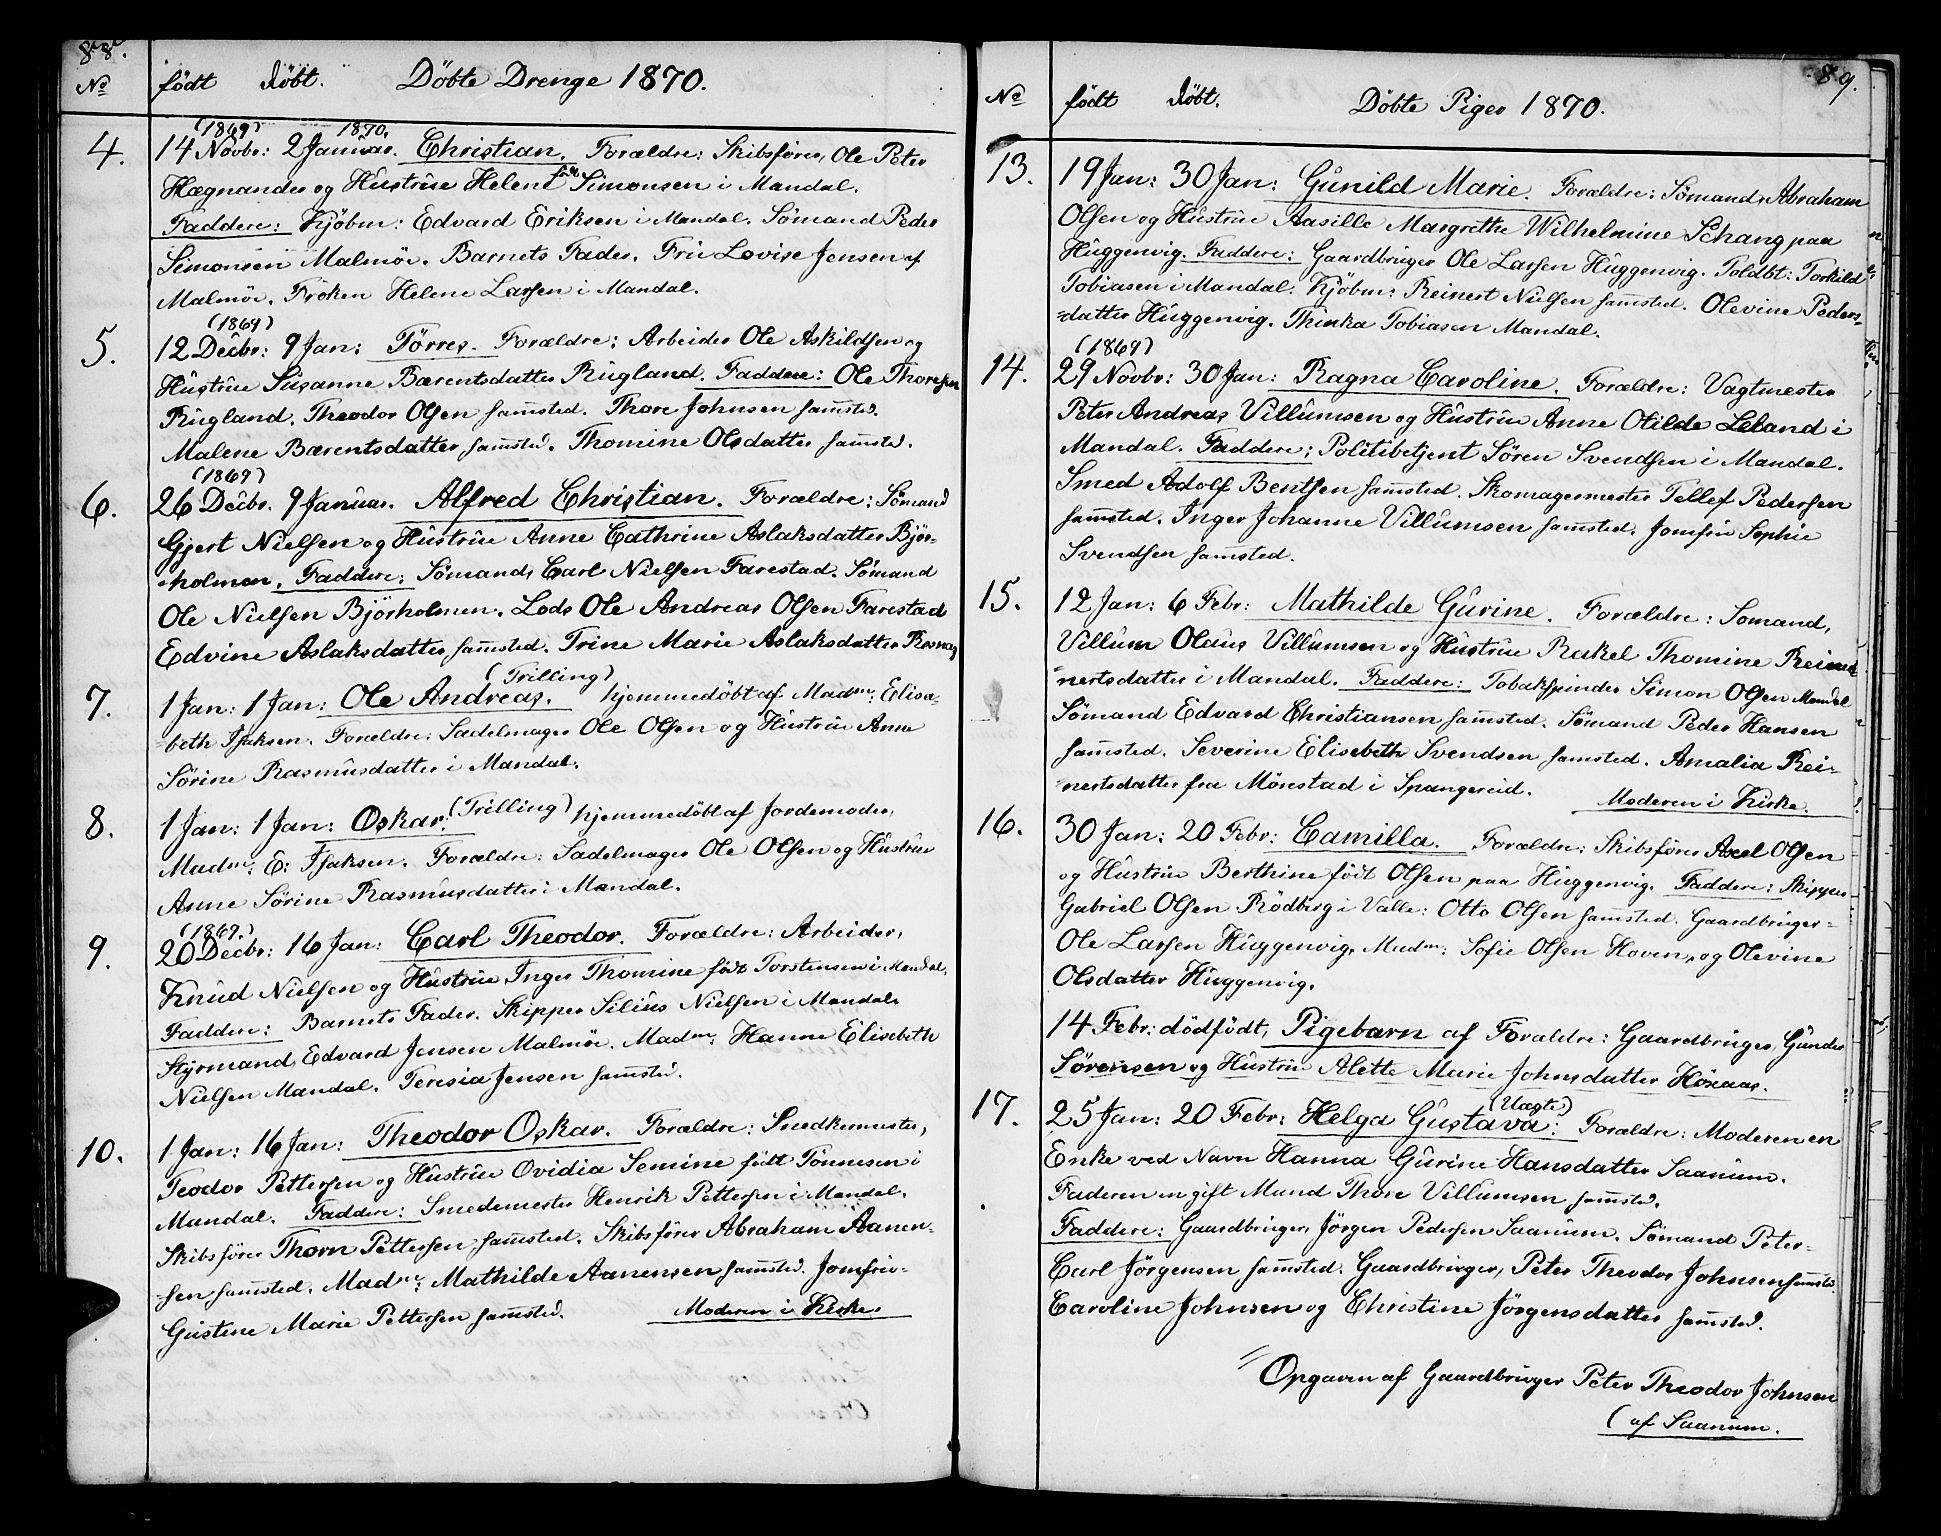 88.
No födt döbt. Döbte Drenge 1870.
(1869) 1870.
4. 14 Novbr: 2 Januar. Christian. Forældre: Skibsfører, Ole Peter
Hægnander og Hustrue Helene født Simonsen i Mandal.
Faddere: Kjöbm: Edvard Eriksen i Mandal. Sömand Peder
Simonsen Malmöe. Barnets Fader. Frue Lovise Jensen af
Malmöe. Fröken Helene Larsen i Mandal.
(1869)
5. 12 Decbr: 9 Jan: Törres. Forældre: Arbeider Ole Askildsen og
Hustrue Susanne Bærentsdatter Rugland. Faddere: Ole Thoresen
Rugland. Theodor Olsen samsted. Thore Johnsen samsted.
Malene Bærentsdatter samsted. Thomine Olsdatter samsted.
(1869)
6. 26 Decbr. 9 Januar. Alfred Christian. Forældre: Sömand
Gjert Nielsen og Hustrue Anne Cathrine Aslaksdatter Björ-
holmen. Faddere: Sömand, Carl Nielsen Farestad. Sömand
Ole Nielsen Björholmen. Lods Ole Andreas Olsen Farestad
Edvine Aslaksdatter samsted. Trine Marie Aslaksdatter
(Trilling)
7. 1 Jan: 1 Jan: Ole Andreas. hjemmedöbt af Madme: Elisa-
beth Isaksen. Forældre: Sadelmager Ole Olsen og Hustrue Anne
Sörine Rasmusdatter i Mandal.
8. 1 Jan: 1 Jan: Oskar. (Trilling) hjemmedöbt af Jordemoder,
Madme: E: Isaksen. Forældre: Sadelmager Ole Olsen og Hustrue
Anne Sörine Rasmusdatter i Mandal.
(1869.)
9. 20 Decbr: 16 Jan: Carl Theodor. Forældre: Arbeider,
Knud Nielsen og Hustrue Inger Thomine født Torstensen i Mandal.
Faddere: Barnets Fader. Skipper Silius Nielsen i Mandal.
Styrmand, Edvard Jensen Malmöe. Madme: Hanne Elisebeth
Nielsen Mandal. Teresia Jensen samsted.
10. 1 Jan: 16 Jan: Theodor Oskar. Forældre: Snedkermester,
Teodor Pettersen og Hustrue Ovidia Semine født Tönnesen i
Mandal. Faddere: Smedemester Henrik Pettersen i Mandal.
Skibsfører Thorn Pettersen samsted. Skibsfører Abraham Aanen-
sen samsted. Madme: Mathilde Aanensen samsted. Jomfrue
Gustine Marie Pettersen samsted. Moderen i Kirke.
89.
No födt döbt. Döbte Piger 1870.
13. 19 Jan: 30 Jan: Gunild Marie. Forældre: Sömand, Abraham
Olsen og Hustrue Aasille Margrethe Wilhelmine Schang paa
Huggenvig. Faddere: Gaardbruger Ole Larsen Huggenvig. Toldbt: Torkild
Tobiasen i Mandal. Kjöbm: Reinert Nielsen samsted. Olevine Peders-
datter Huggenvig. Thinka Tobiasen Mandal.
(1869)
14. 29 Novbr: 30 Jan: Ragna Caroline. Forældre: Vagtmester
Peter Andreas Villumsen og Hustrue Anne Otilde Leland i
Mandal. Faddere: Politibetjent Sören Svendsen i Mandal.
Smed Adolf Bentsen samsted. Skomagermester Tellef Pedersen
samsted. Inger Johanne Villumsen samsted. Jomfrue Sophie
Svendsen samsted.
15. 12 Jan: 6 Febr: Mathilde Gurine. Forældre: Sömand,
Villum Olaus Villumsen og Hustrue Rakel Thomine Rei-
nertsdatter i Mandal. Faddere: Tobakspinder Simon Olsen Mandal
Sömand Edvard Christiansen samsted. Sömand Peder Hansen
samsted. Severine Elisebeth Svendsen samsted. Amalia Rei-
nertsdatter fra Mönestad i Spangereid. Moderen i Kirke.
16. 30 Jan: 20 Febr: Camilla. Forældre: Skibsfører Axel Olsen
og Hustrue Berthine født Olsen paa Huggenvig. Faddere: Skipper
Gabriel Olsen Rödberg i Valle: Otto Olsen samsted. Gaardbruger
Ole Larsen Huggenvig, Madme: Sofie Olsen Hoven, og Olevine
Olsdatter Huggenvig.
14 Febr: dödfödt, Pigebarn af Forældre: Gaardbruger, Gunder
Sörensen og Hustrue Alette Marie Johnsdatter Höxaas.
(Uægte)
17. 25 Jan: 20 Febr: Helga Gustava: Forældre: Moderen en
Enke ved Navn Hanna Gurine Hansdatter Saanum.
Faderen en gift Mand Thore Villumsen samsted.
Faddere: Gaardbruger, Jörgen Pedersen Saanum. Sömand Peter
Carl Jörgensen samsted. Gaardbruger, Peter Theodor Johnsen samsted.
Caroline Johnsen og Christine Jörgensdatter samsted.
Opgaven af Gaardbruger Peter Theodor Johnsen
(af Saanum.